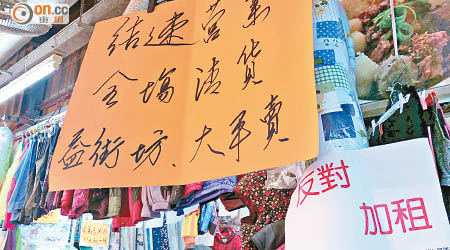 on.cc
東網
結速营業
全場清貨
益街坊、大平賣
反對
加租